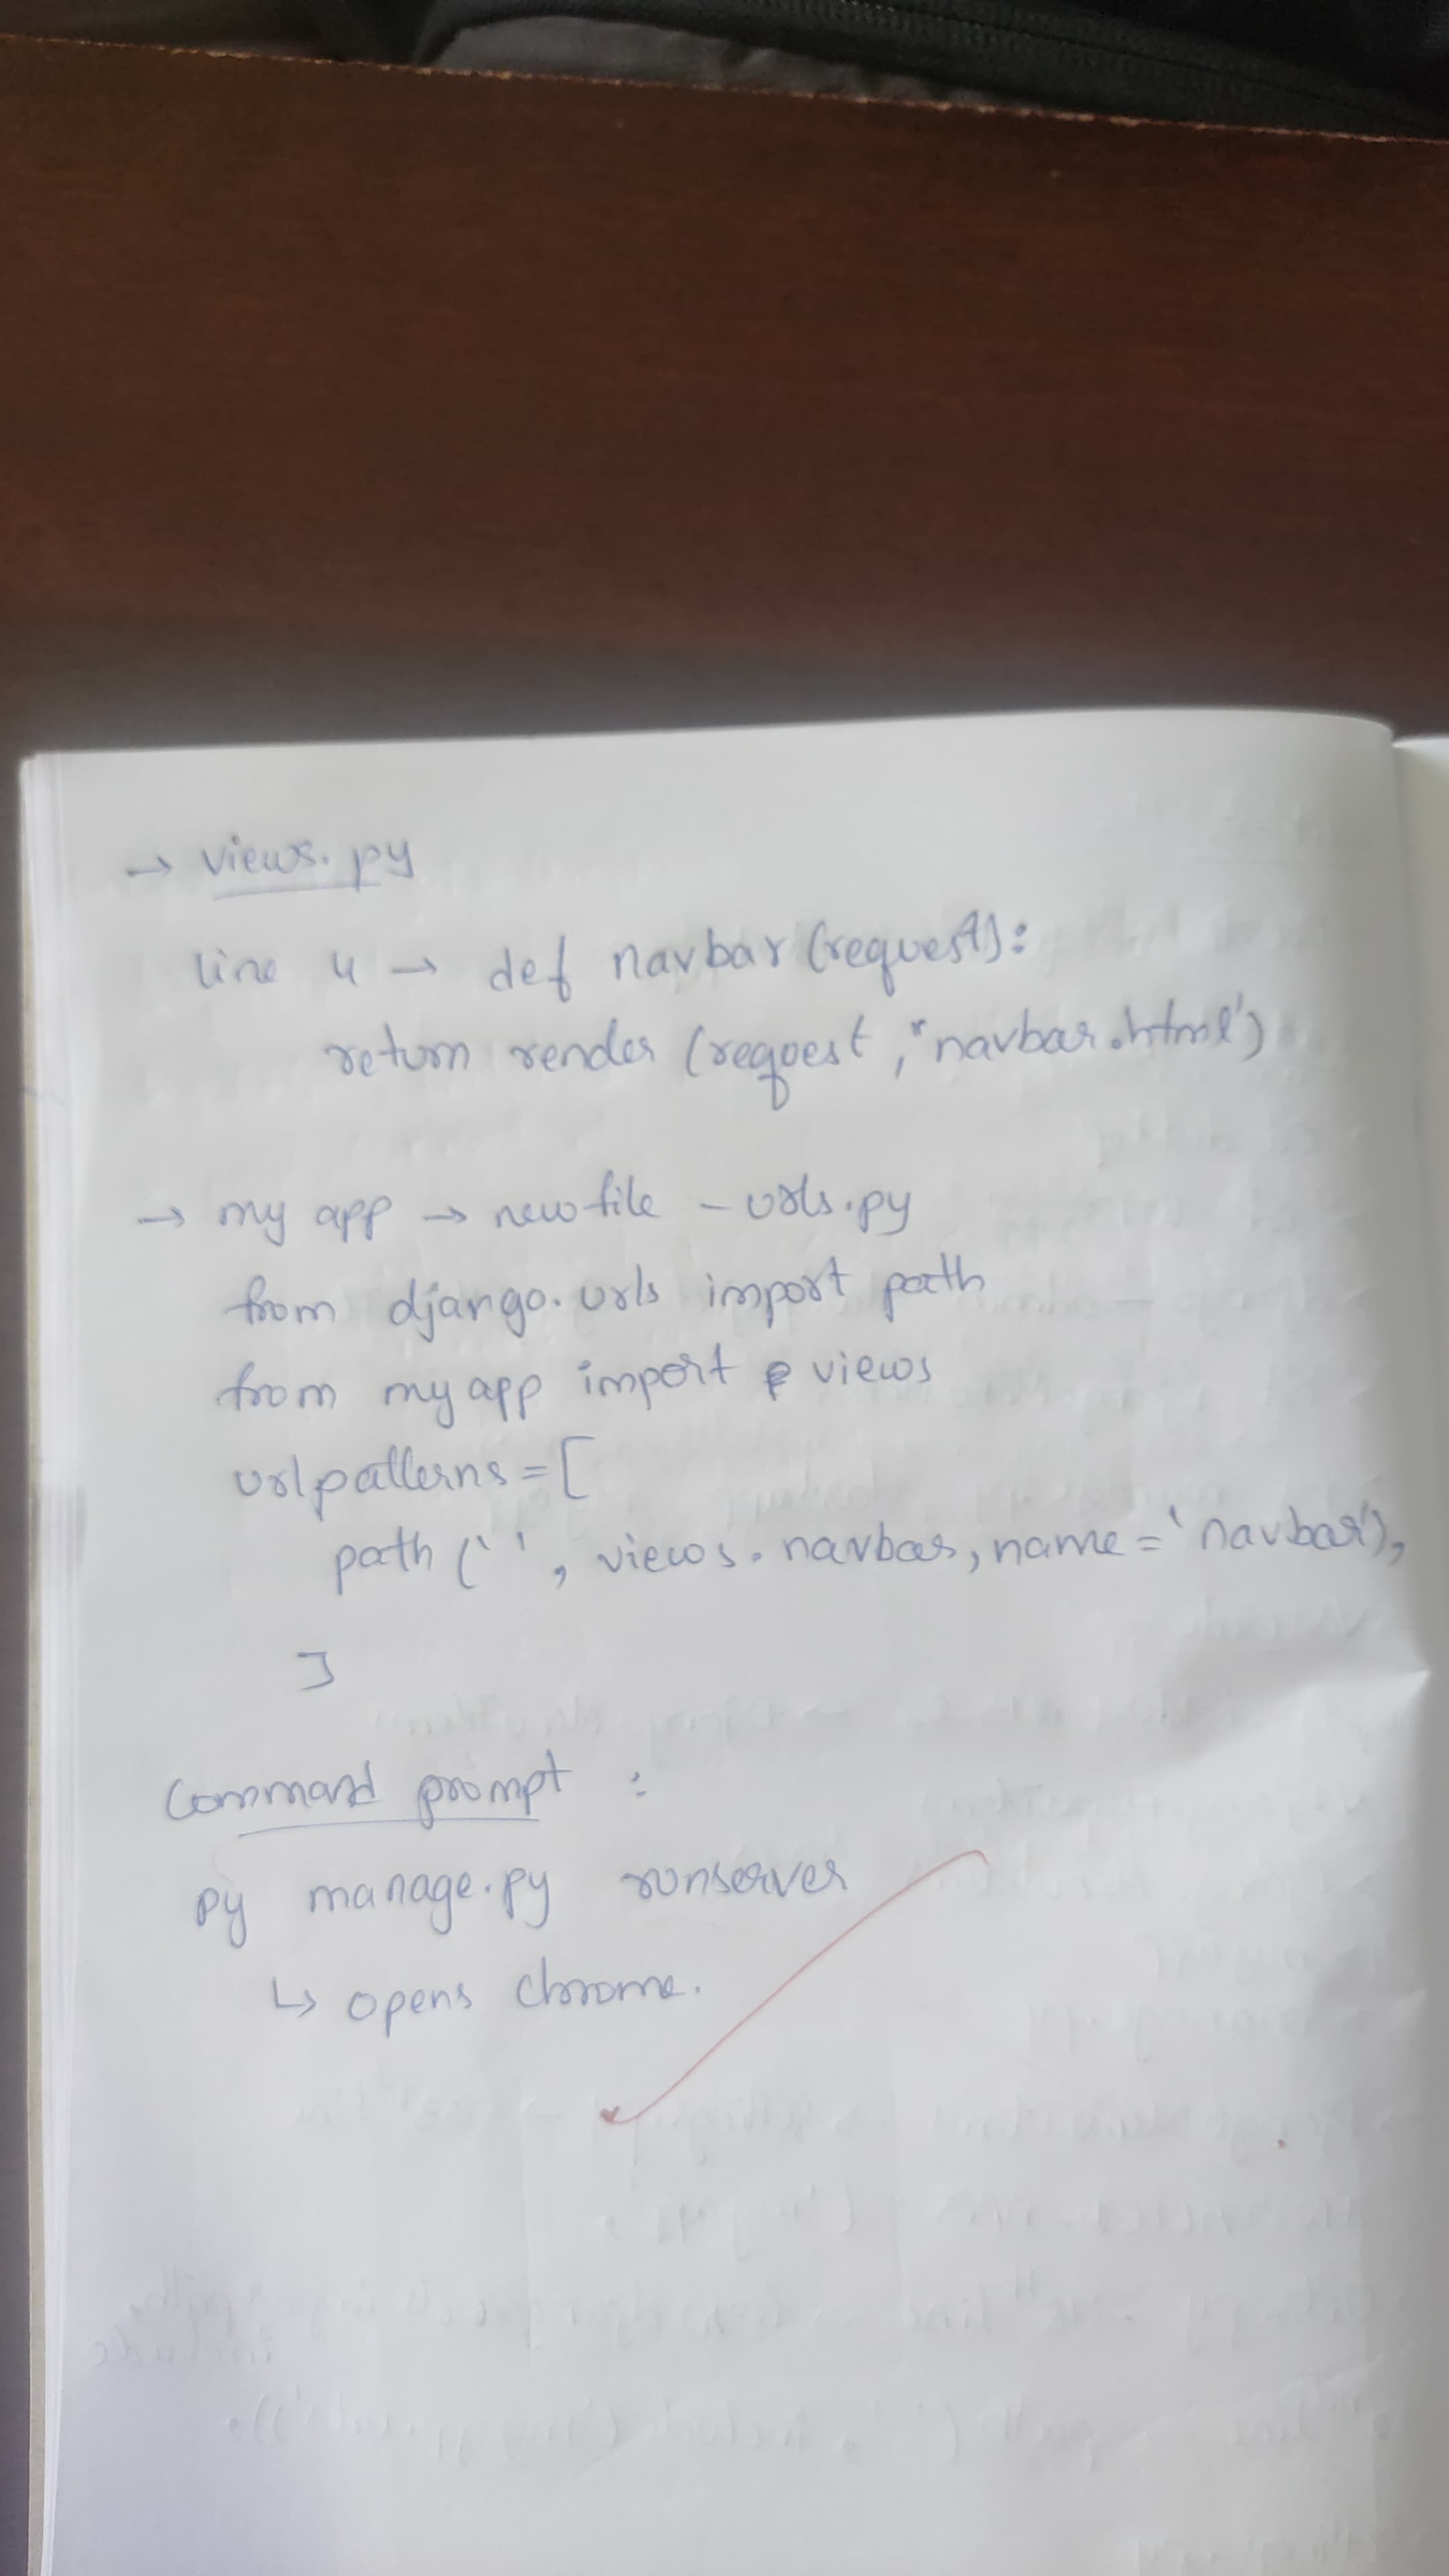 → views.py
line 4 → def navbar (request):
return render (request, 'navbar.html')
→ my app → new file - urls.py
from django.urls import path
from myapp import views
urlpatterns = [
path ('', views.navbar, name = 'navbar'),
]
Command prompt :
py manage.py runserver
↳ opens chrome.